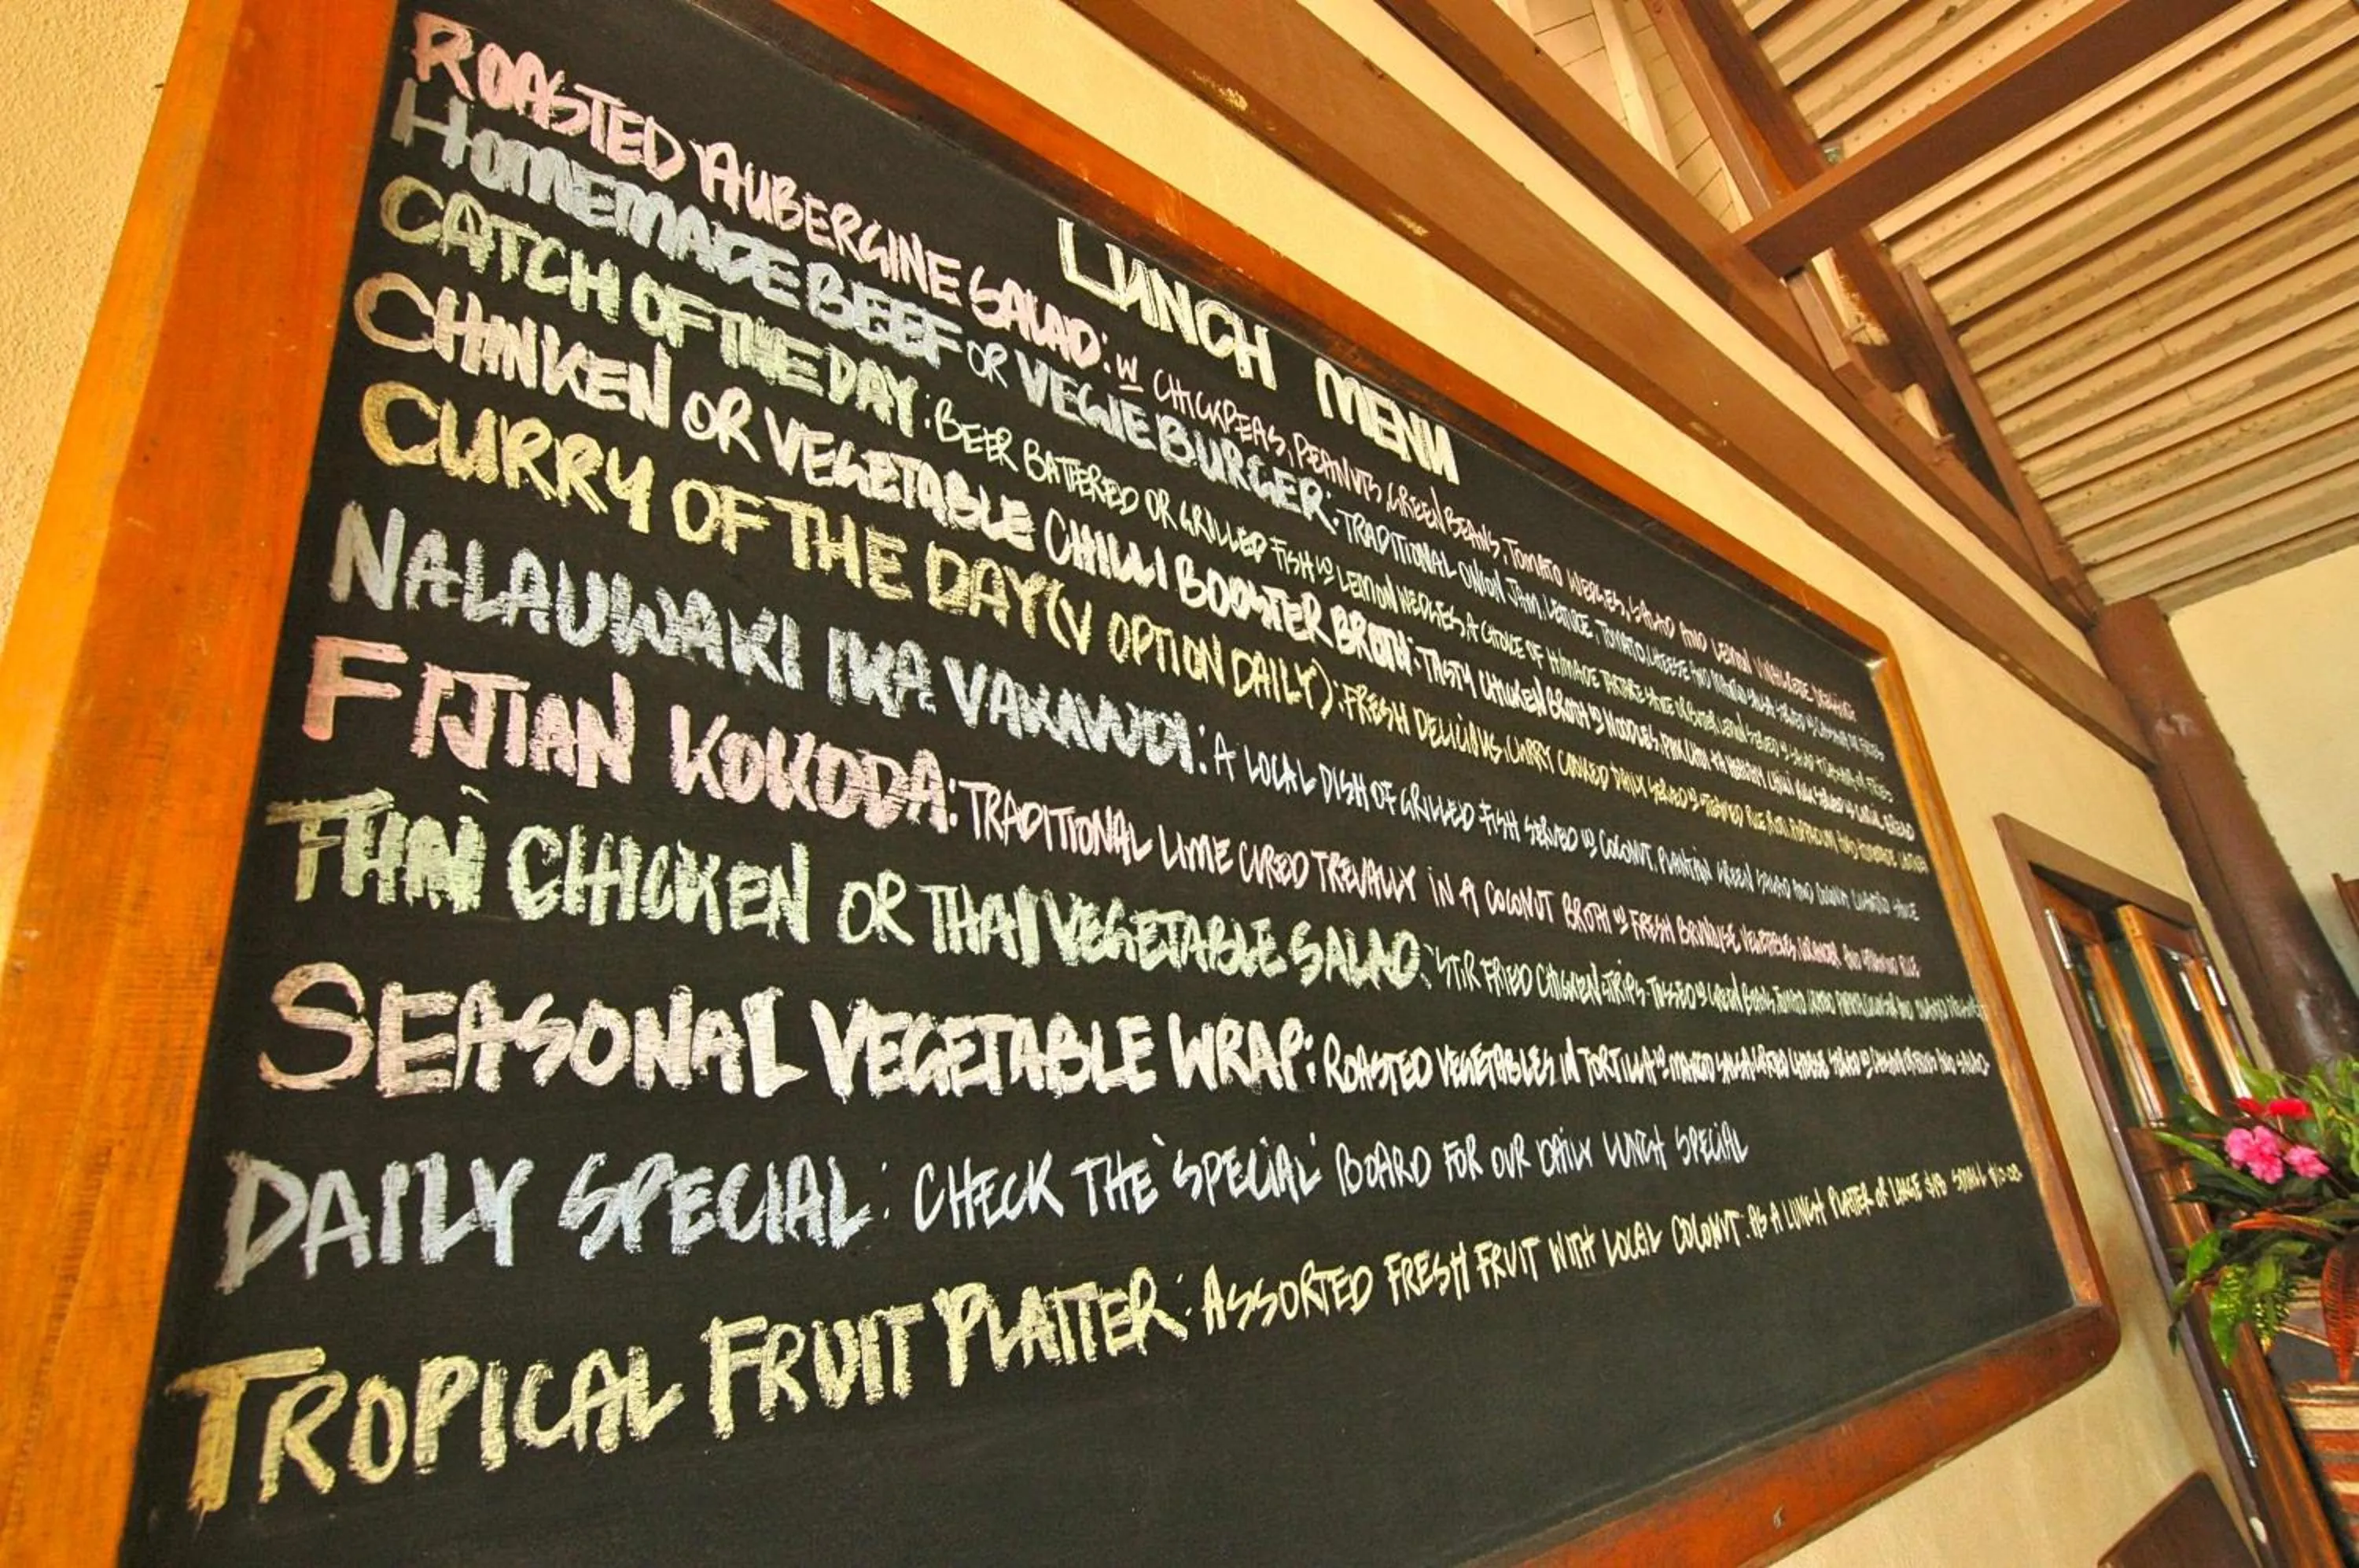 LUNCH MENU
ROASTED AUBERGINE SALAD: W CHICKPEAS, PEANUTS, GREEN BEANS, TOMATO WEDGES, SALAD AND LEMON
HOMEMADE BEEF OR VEGIE BURGER: TRADITIONAL ONION JAM, LETTUCE, TOMATO, CHEESE
CATCH OF THE DAY: BEER BATTERED OR GRILLED FISH W LEMON WEDGES, A CHOICE OF H/MADE TARTARE
CHINKEN OR VEGETABLE CHILLI BOOSTER BROTH: TASTY CHICKEN BROTH W NOODLES,
CURRY OF THE DAY (V OPTION DAILY): FRESH DELICIOUS CURRY COOKED DAILY SERVED W STEAMED RICE, ROTI,
NALAUWAKI IKA VAKAVUDI: A LOCAL DISH OF GRILLED FISH SERVED W COCONUT, PLANTAIN GREEN SALAD AND
FIJIAN KOKODA: TRADITIONAL LIME CURED TREVALLY IN A COCONUT BROTH W FRESH BRUNOISE VEGETABLES,
THAI CHICKEN OR THAI VEGETABLE SALAD: STIR FRIED CHICKEN STRIPS TOSSED W GREEN BEANS, TOMATO
SEASONAL VEGETABLE WRAP: ROASTED VEGETABLES IN TORTILLA W MANGO SALSA, GRATED CHEESE SERVED W
DAILY SPECIAL: CHECK THE 'SPECIAL' BOARD FOR OUR DAILY LUNCH SPECIAL
TROPICAL FRUIT PLATTER: ASSORTED FRESH FRUIT WITH LOCAL COCONUT: AS A LUNCH PLATTER OF LARGE SMALL